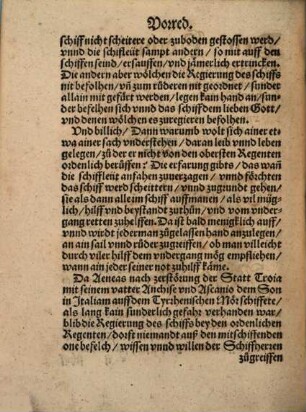 Vorred.
schiff nicht scheitere oder zuboden gestossen werd/
vnnd die schifleüt sampt andern / so mit auff den
schiffen seind/ ersauffen/ vnd jämerlich ertrincken.
Die andern aber wölchen die Regierung des schiffs
nit befolhen/ vñ zum rüderen nit geordnet / sunder
allain mit gefürt werden/ legen kain hand an/ sun⸗
der befelhen sich vnnd das schiff dem lieben Gott/
vnd denen wölchen es zuregieren befolhen.
Vnd billich/ Dann warumb wolt sich ainer et⸗
wa ainer sach vnderstehen/ daran leib vnnd leben
gelegen/ zů der er nicht von den obersten Regenten
ordenlich berüffen? Die erfarung gibts/ das wañ
die schiffleüt anfahen zuuerzagen/ vnnd förchten
das schiff werd scheittern/ vnnd zugrundt gehen/
sie als dann alle im schiff auffmanen/ als vil müg⸗
lich/ hilff vnd beystand zuthůn/ vnd vom vnder⸗
gang retten zuhelffen. Da ist bald menigklich auff/
vnd wirdt jederman zůgelassen hand anzulegen/
an ain sail vnnd růder zugreiffen/ ob man villeicht
durch viler hilff dem vndergang mög empfliehen/
wann ain jeder seiner not zuhilff käme.
Da Aeneas nach zerstörung der Statt Troia
mit seinem vatter Anchise vnd Ascanio dem Son
in Italiam auff dem Tyrrhenischen Mör schiffete/
als lang kain sunderlich gefahr verhanden war/
blib die Regierung des schiffs bey den ordenlichen
Regenten/ dorfft niemandt auß den mitschiffenden
one befelch/ wissen vnnd willen der Schiffherren
zůgreiffen